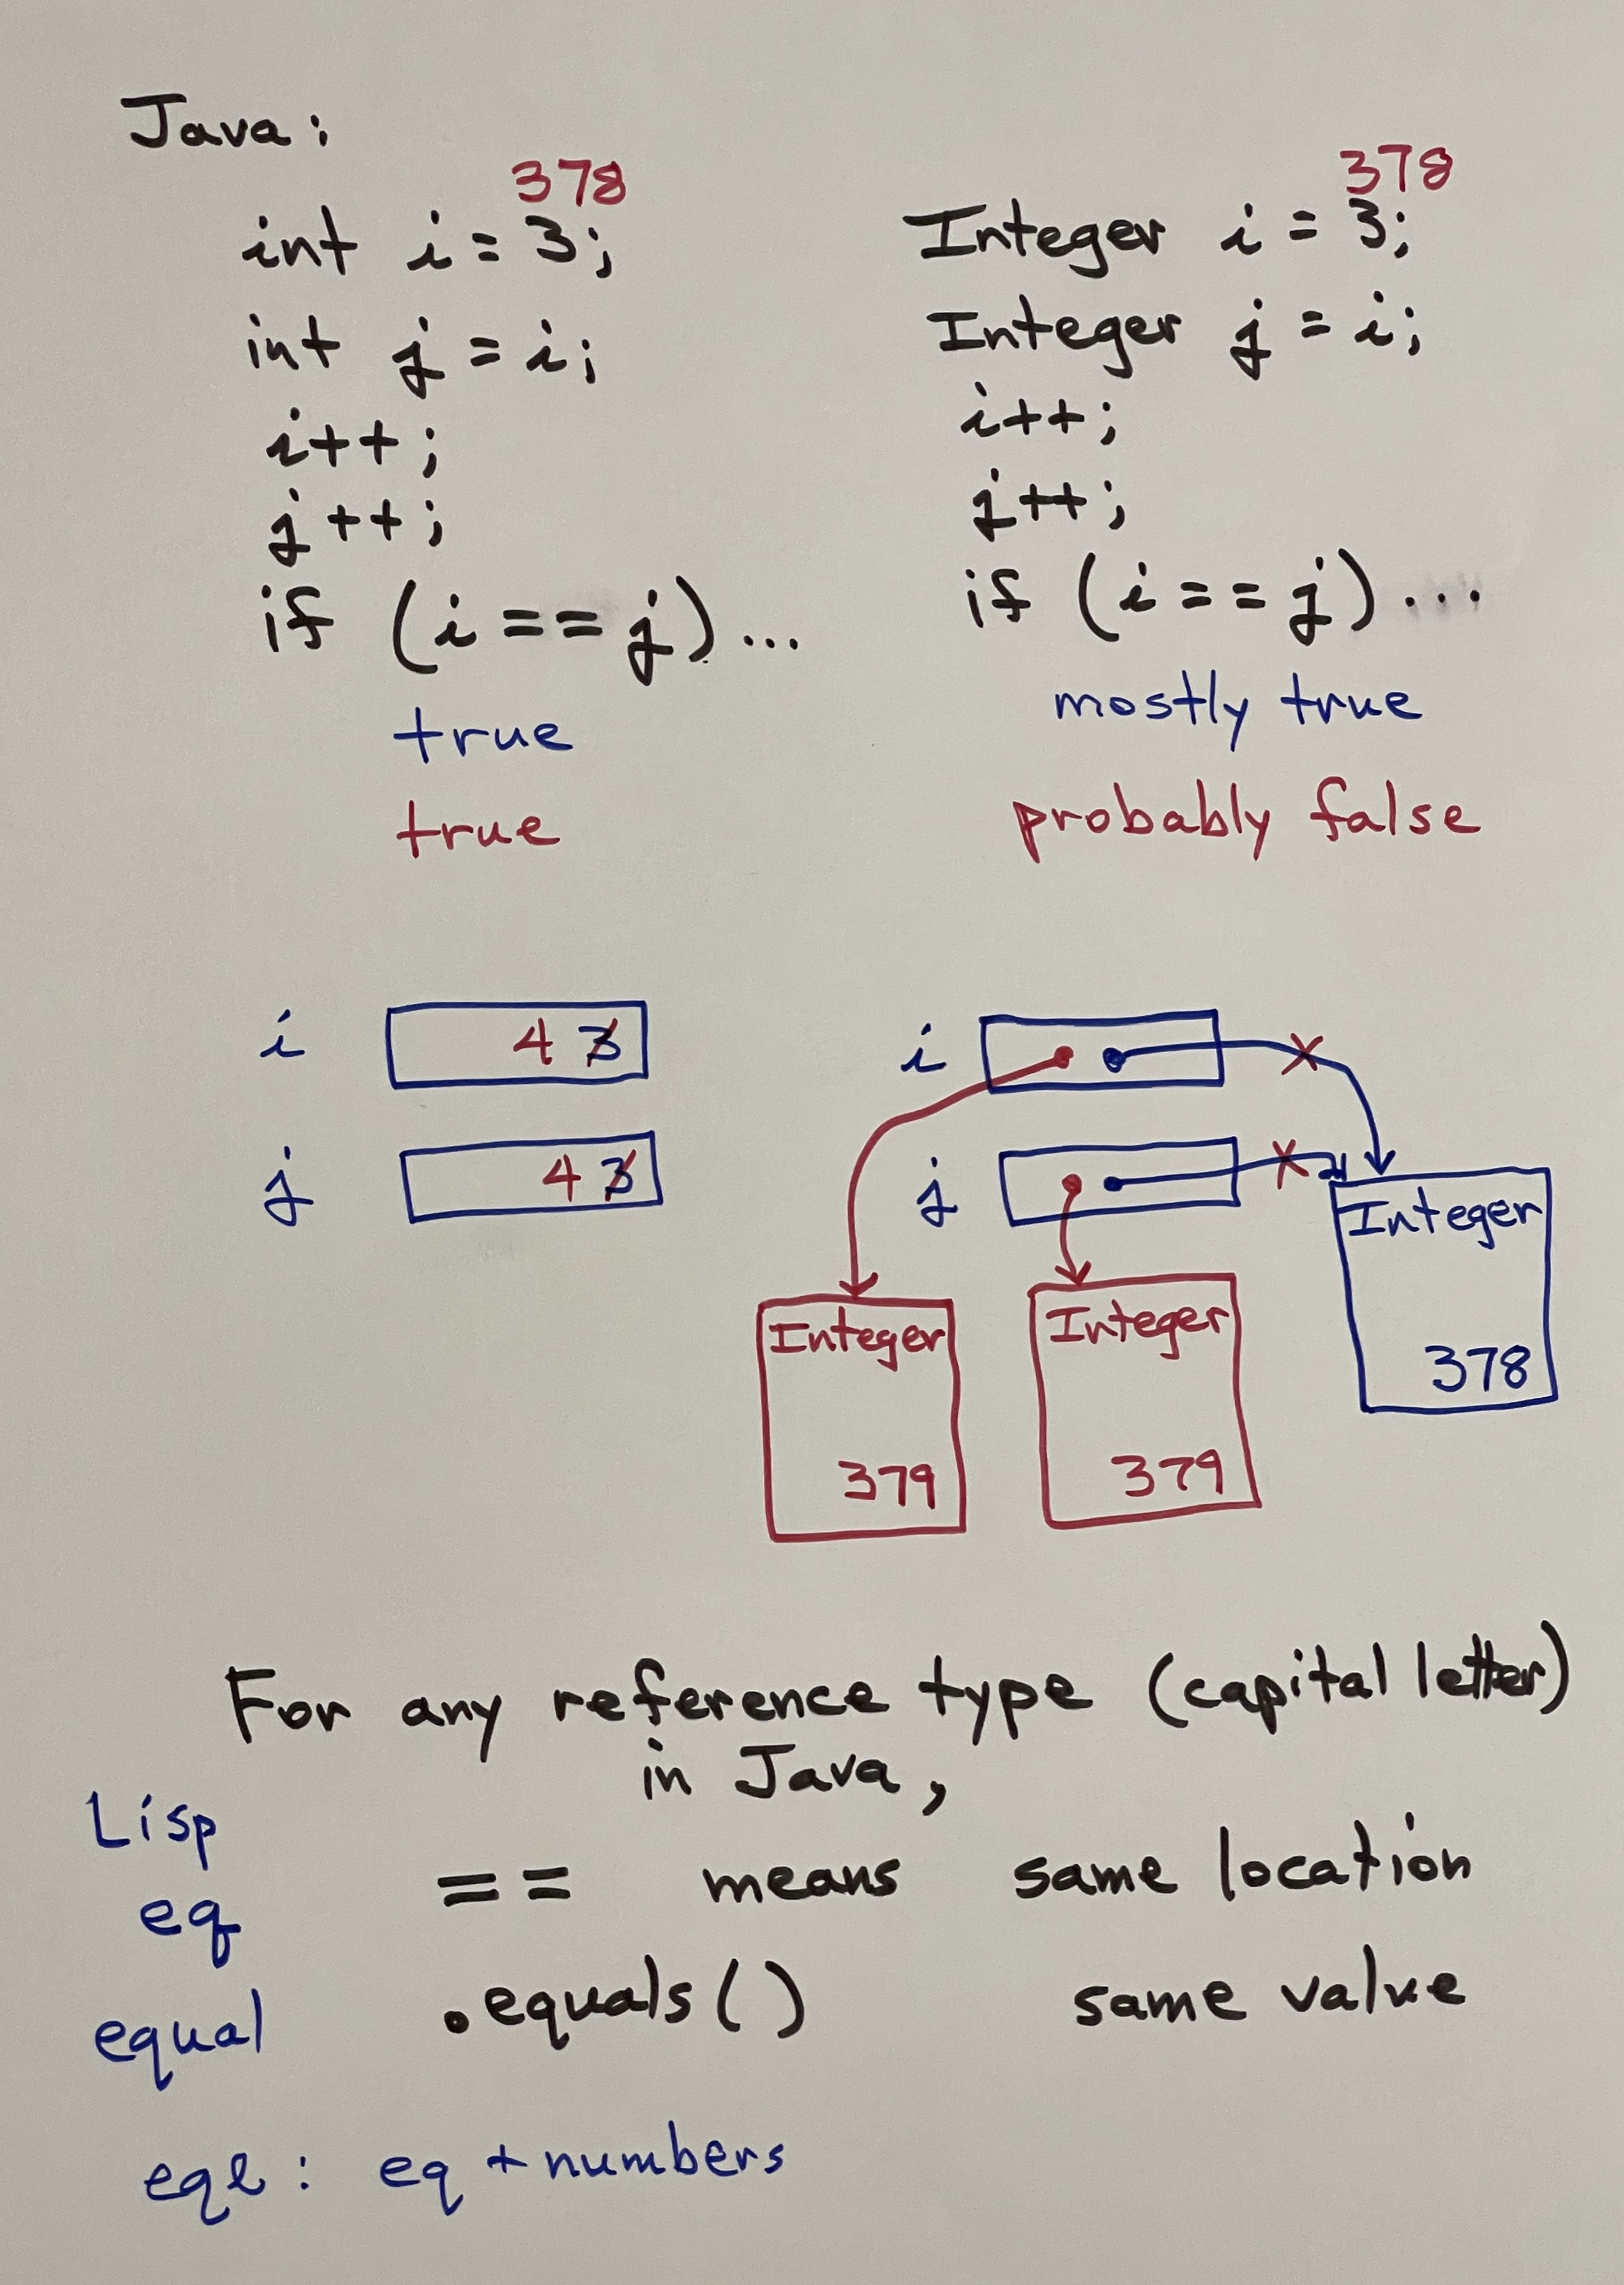 Java:
378
int i = 3;
int j = i;
i++;
j++;
if (i == j)...
true
true
378
Integer i = 3;
Integer j = i;
i++;
j++;
if (i == j)...
mostly true
probably false
i 4 3
j 4 3
i
j
Integer
378
Integer
379
Integer
379
For any reference type (capital letter)
in Java,
Lisp
eq == means same location
equal .equals() same value
eql: eq + numbers